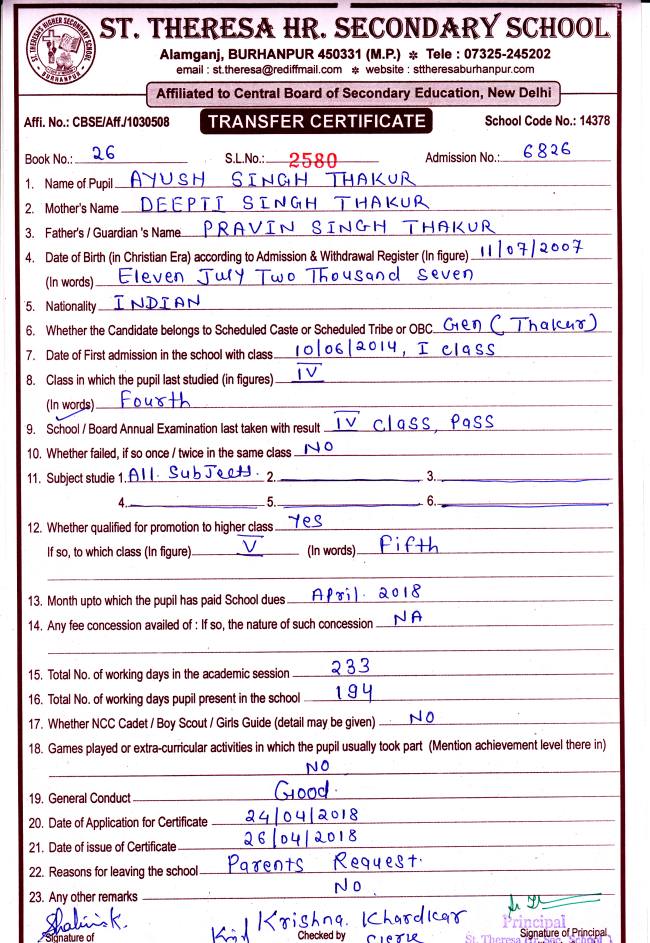 ST. THERESA HR. SECONDARY SCHOOL
Alamganj, BURHANPUR 450331 (M.P.) ✻ Tele : 07325-245202
email : st.theresa@rediffmail.com ✻ website : sttheresaburhanpur.com
Affiliated to Central Board of Secondary Education, New Delhi
Affi. No.: CBSE/Aff./1030508 TRANSFER CERTIFICATE School Code No.: 14378
Book No.: 26 S.L.No.: 2580 Admission No.: 6826
1. Name of Pupil AYUSH SINGH THAKUR
2. Mother's Name DEEPTI SINGH THAKUR
3. Father's / Guardian 's Name PRAVIN SINGH THAKUR
4. Date of Birth (in Christian Era) according to Admission & Withdrawal Register (In figure) 11/07/2007
(In words) Eleven July Two Thousand Seven
5. Nationality INDIAN
6. Whether the Candidate belongs to Scheduled Caste or Scheduled Tribe or OBC Gen (Thakur)
7. Date of First admission in the school with class 10/06/2014, I class
8. Class in which the pupil last studied (in figures) IV
(In words) Fourth
9. School / Board Annual Examination last taken with result IV class, Pass
10. Whether failed, if so once / twice in the same class NO
11. Subject studie 1. All Subjects. 2. 3.
4. 5. 6.
12. Whether qualified for promotion to higher class Yes
If so, to which class (In figure) V (In words) Fifth
13. Month upto which the pupil has paid School dues April. 2018
14. Any fee concession availed of : If so, the nature of such concession NA
15. Total No. of working days in the academic session 233
16. Total No. of working days pupil present in the school 194
17. Whether NCC Cadet / Boy Scout / Girls Guide (detail may be given) NO
18. Games played or extra-curricular activities in which the pupil usually took part (Mention achievement level there in)
NO
19. General Conduct Good.
20. Date of Application for Certificate 24/04/2018
21. Date of issue of Certificate 26/04/2018
22. Reasons for leaving the school Parents Request.
23. Any other remarks NO.
Krishna. Khardkar
Principal
Signature of Checked by Clerk Signature of Principal
St. Theresa Hr. Sec. School